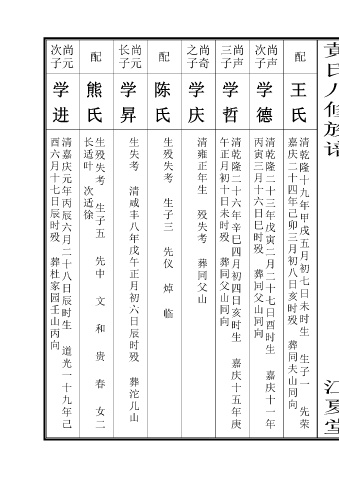 黄氏八修族谱
江夏堂
配
王氏
清乾隆十九年甲戌五月初七日未时生 生子一 先荣
嘉庆二十四年己卯三月初八日亥时殁 葬同夫山同向
尚声次子
学德
清乾隆二十三年戊寅二月二十七日酉时生 嘉庆十一年
丙寅三月十六日巳时殁 葬同父山同向
尚声三子
学哲
清乾隆二十六年辛巳四月初四日亥时生 嘉庆十五年庚
午正月初十日未时殁 葬同父山同向
尚奇之子
学庆
清雍正年生 殁失考 葬同父山
配
陈氏
生殁失考 生子三 先仪 焯 临
尚元长子
学昇
生失考 清咸丰八年戊午正月初六日辰时殁 葬沱儿山
配
熊氏
生殁失考 生子五 先中 文 和 贵 春 女二
长适叶 次适徐
尚元次子
学进
清嘉庆元年丙辰六月二十八日辰时生 道光一十九年己
酉六月十七日辰时殁 葬杜家园壬山丙向